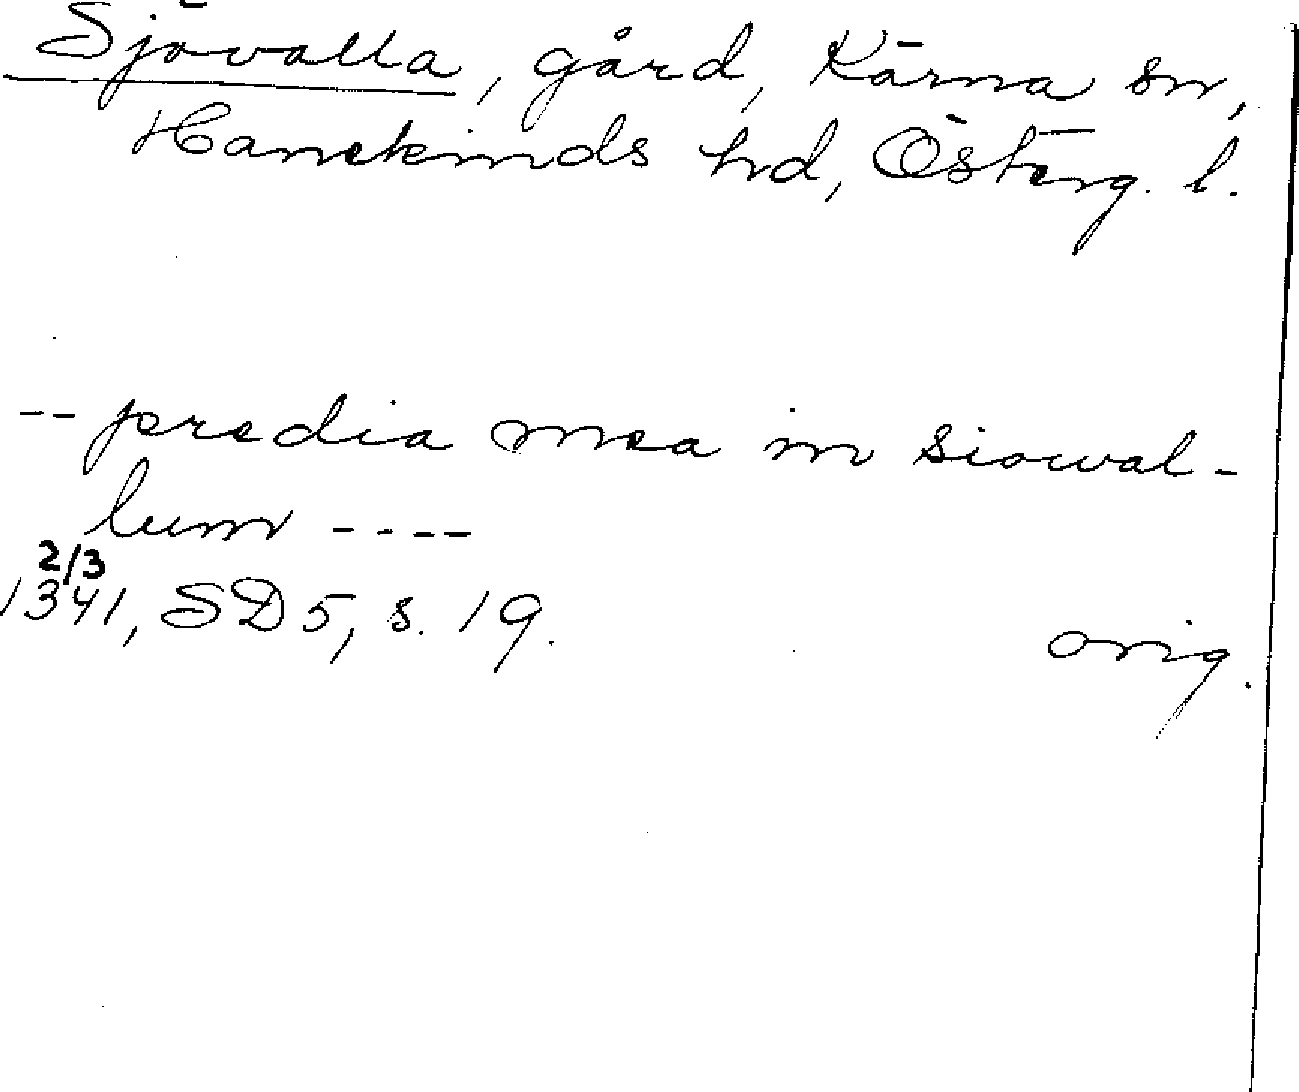 Sjövalla, gård, Kärna sn,
Hanekinds hd, Österg. l.
-- predia mea in siowal-
lum ----
2/3
1341, SD 5, s. 19.
orig.